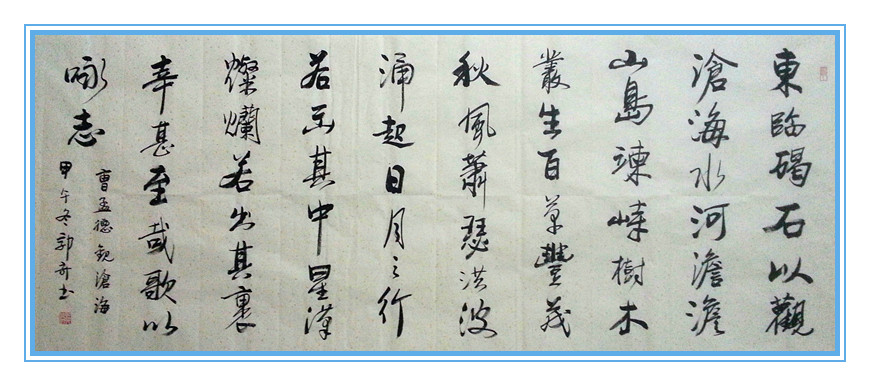 東臨碣石以觀
滄海水河澹澹
山島竦峙樹木
叢生百草豐茂
秋風蕭瑟洪波
涌起日月之行
若出其中星漢
燦爛若出其裏
幸甚至哉歌以
咏志
曹孟德觀滄海
甲午冬郭书